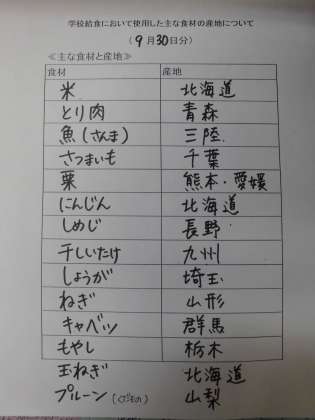 学校給食において使用した主な食材の産地について
(9月30日分)
≪主な食材と産地≫
食材 産地
米 北海道
とり肉 青森
魚(さんま) 三陸
さつまいも 千葉
栗 熊本・愛媛
にんじん 北海道
しめじ 長野
干しいたけ 九州
しょうが 埼玉
ねぎ 山形
キャベツ 群馬
もやし 栃木
玉ねぎ 北海道
プルーン(くだもの) 山梨